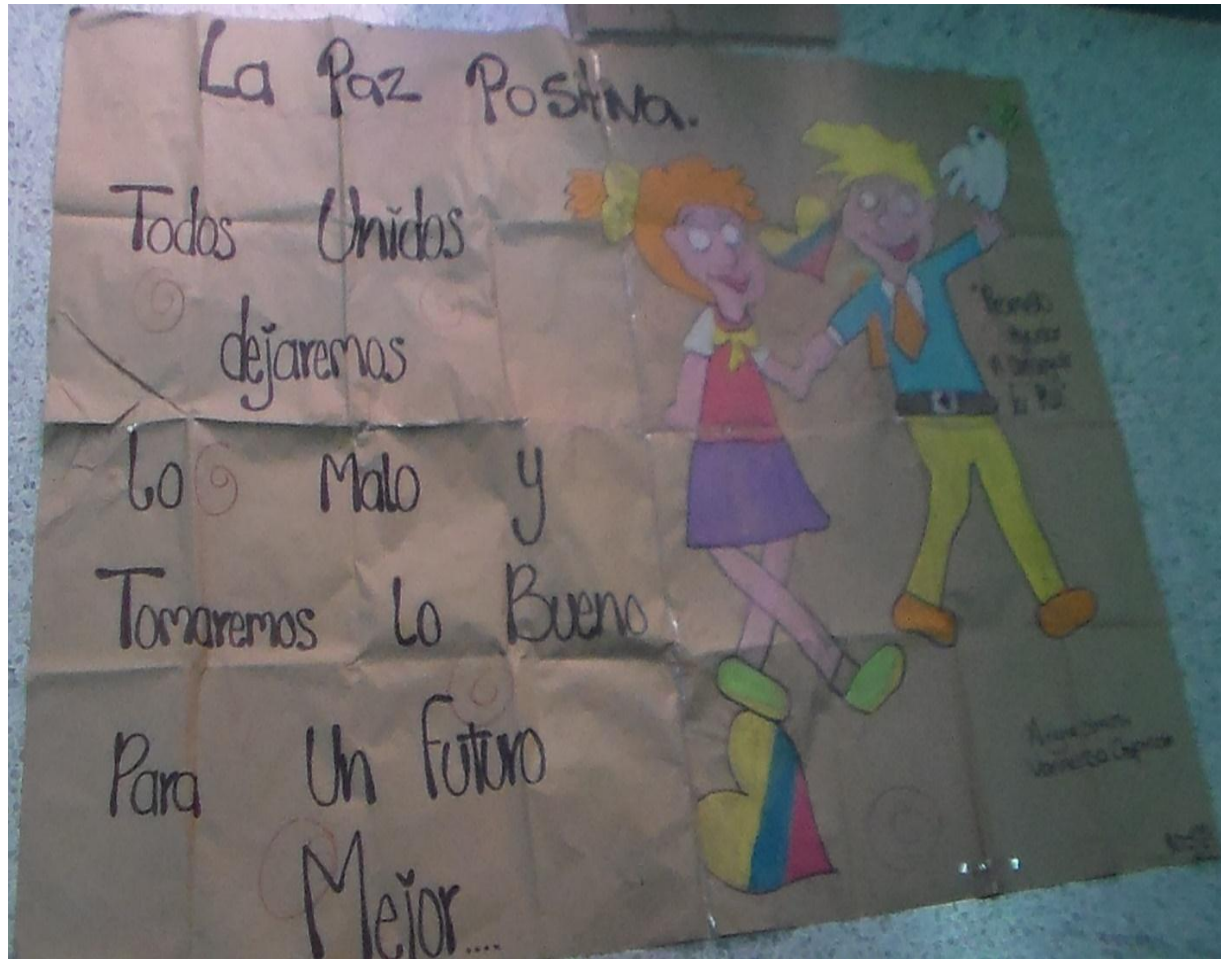 La Paz Positiva.
Todos Unidos
dejaremos
lo Malo y
Tomaremos lo Bueno
Para Un futuro
Mejor....
A
la Paz"
Vanessa